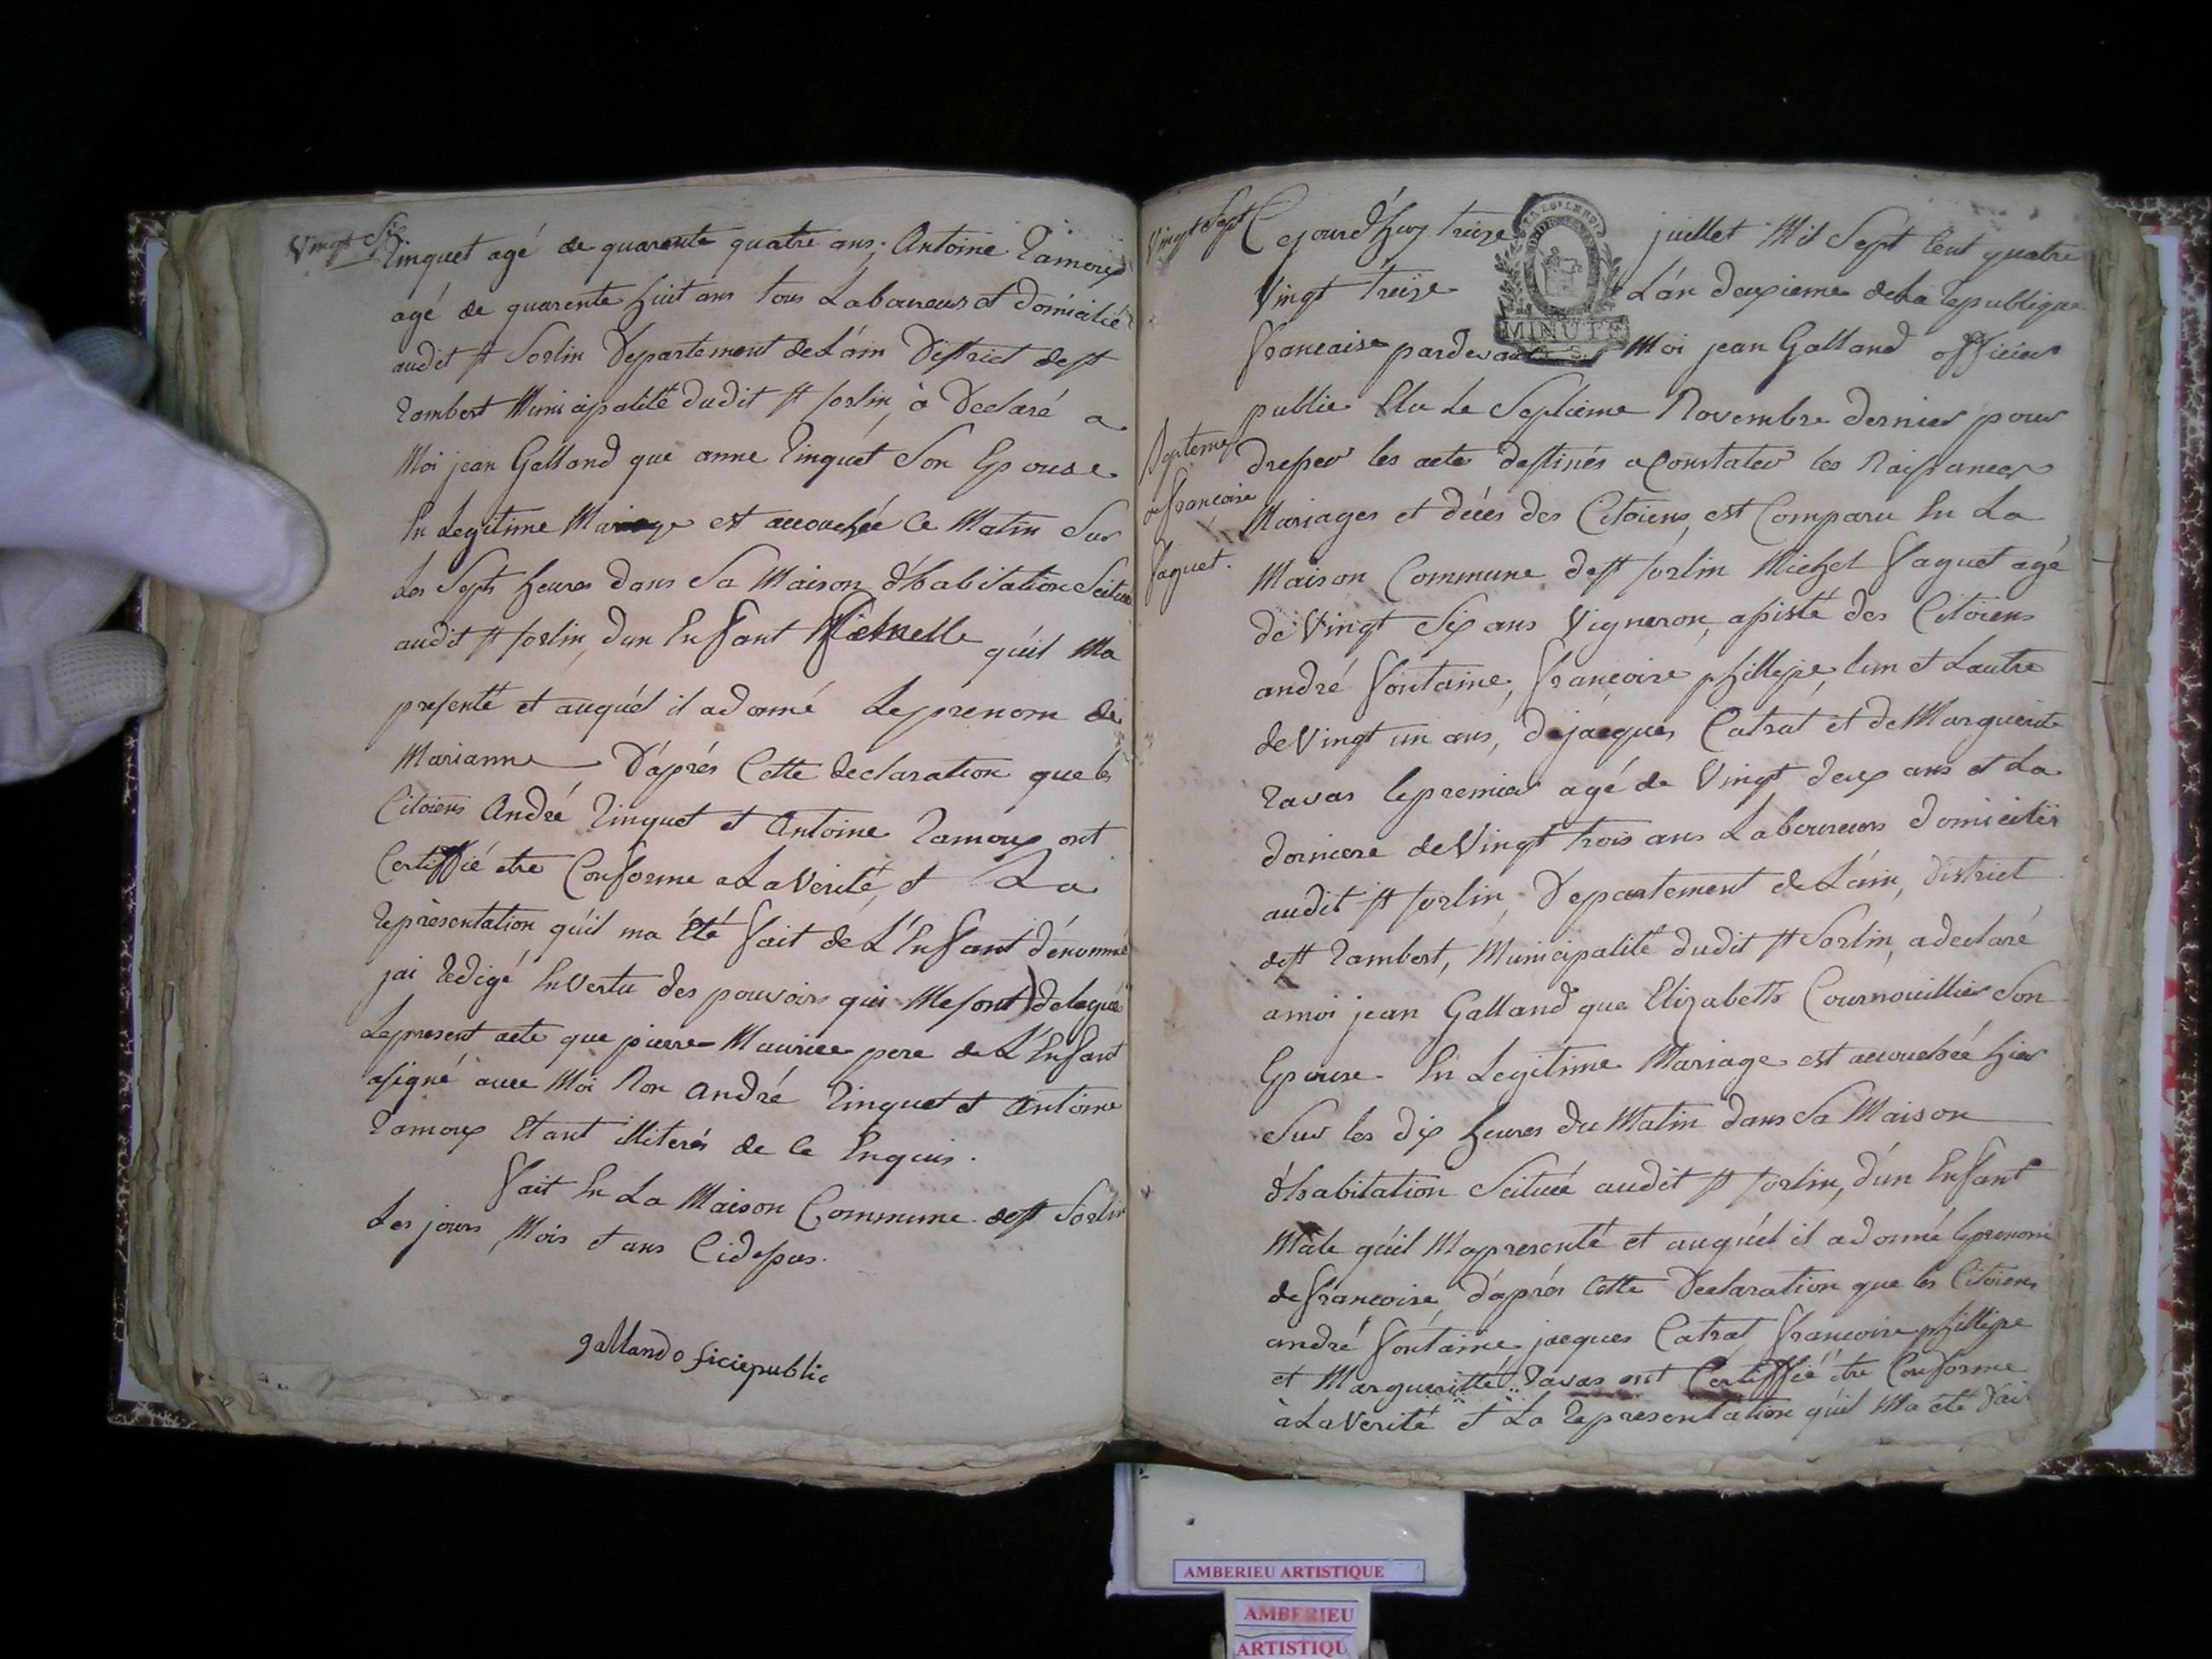 Vingt Six
Tinquet agé de quarente quatre ans, Antoine Ramoux
agé de quarente huit ans tous Laboureurs et domicilié
audit st Sorlin Département de L'ain District de st
Rambert Municipalité dudit st Sorlin, à Declaré a
Moi jean Galland que anne Tinquet Son Epouse
En Legitime Mariage est accouchée Ce Matin Sur
Les Sept heures dans Sa Maison d'habitation Scituée
audit st Sorlin, dun Enfant femelle qu'il Ma
presenté et auquel il adonné Leprenom de
Marianne D'après Cette declaration que les
Citoiens André Tinquet et Antoine Ramoux ont
Certiffié etre Conforme a La Verité, et La
Représentation qu'il ma été fait de L'Enfant dénommé
jai Redigé En Vertu des pouvoirs qui Me sont delegué
Lepresent acte que pierre Maurice pere de L'Enfant
asigné avec Moi Non André Tinquet et Antoine
Ramoux Etant illiterés de ce Enquis.
fait En La Maison Commune de st Sorlin
Les jours, Mois et ans Cidessus.
galland oficiepublic
Vingt Sept
Cejourd'huy treize juillet Mil Sept Cent quatre
Vingt treize L'an deuxieme de La Republique
francaise pardevant Moi jean Galland officier
public Elu Le Septieme Novembre dernier pour
Bapteme
de francoise
faguet.
dresser les acte destinés a Constater les Naissances
Mariages et décés des Citoiens, est Comparu En La
Maison Commune de st Sorlin Michel faguet agé
de Vingt Six ans Vigneron, assisté des Citoiens
andré fontaine, francoise phillippe, lun et Lautre
de Vingt un ans, de jacques Catrat et de Marguerite
Ravas lepremier agé de Vingt deux ans et La
derniere de Vingt trois ans Laboureurs domiciliés
audit st Sorlin, Département de L'ain, District
de st Rambert, Municipalité dudit st Sorlin, adeclaré
amoi jean Galland que Elizabeth Cournouillier Son
Epouse En Legitime Mariage est accouchée hier
Sur les dix heures du Matin dans Sa Maison
d'habitation Scituée audit st Sorlin, d'un Enfant
Male qu'il Mapresenté et auquel il adonné leprenom
de francoise, d'après Cette Declaration que les Citoiens
andré fontaine jacques Catrat francoise phillippe
et Marguerite Ravas ont Certiffié etre Conforme
à La Verité et La Representation qu'il Ma été fait
MINUTE
AMBERIEU ARTISTIQUE
AMBERIEU
ARTISTIQU